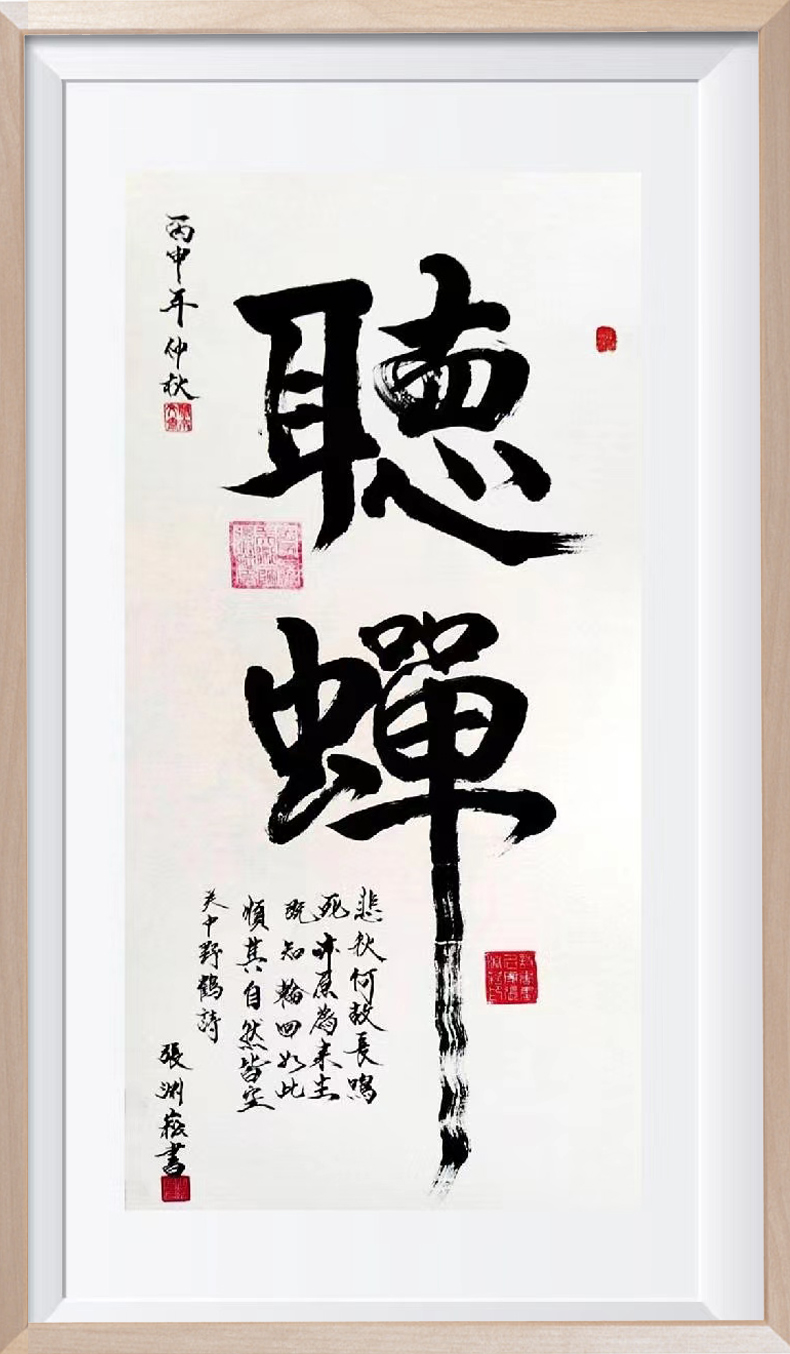 聽蟬
悲秋何故長鳴
死亦原為來生
既知輪回如此
順其自然皆空
关中野鶴詩
張淵菘書
丙申年仲秋